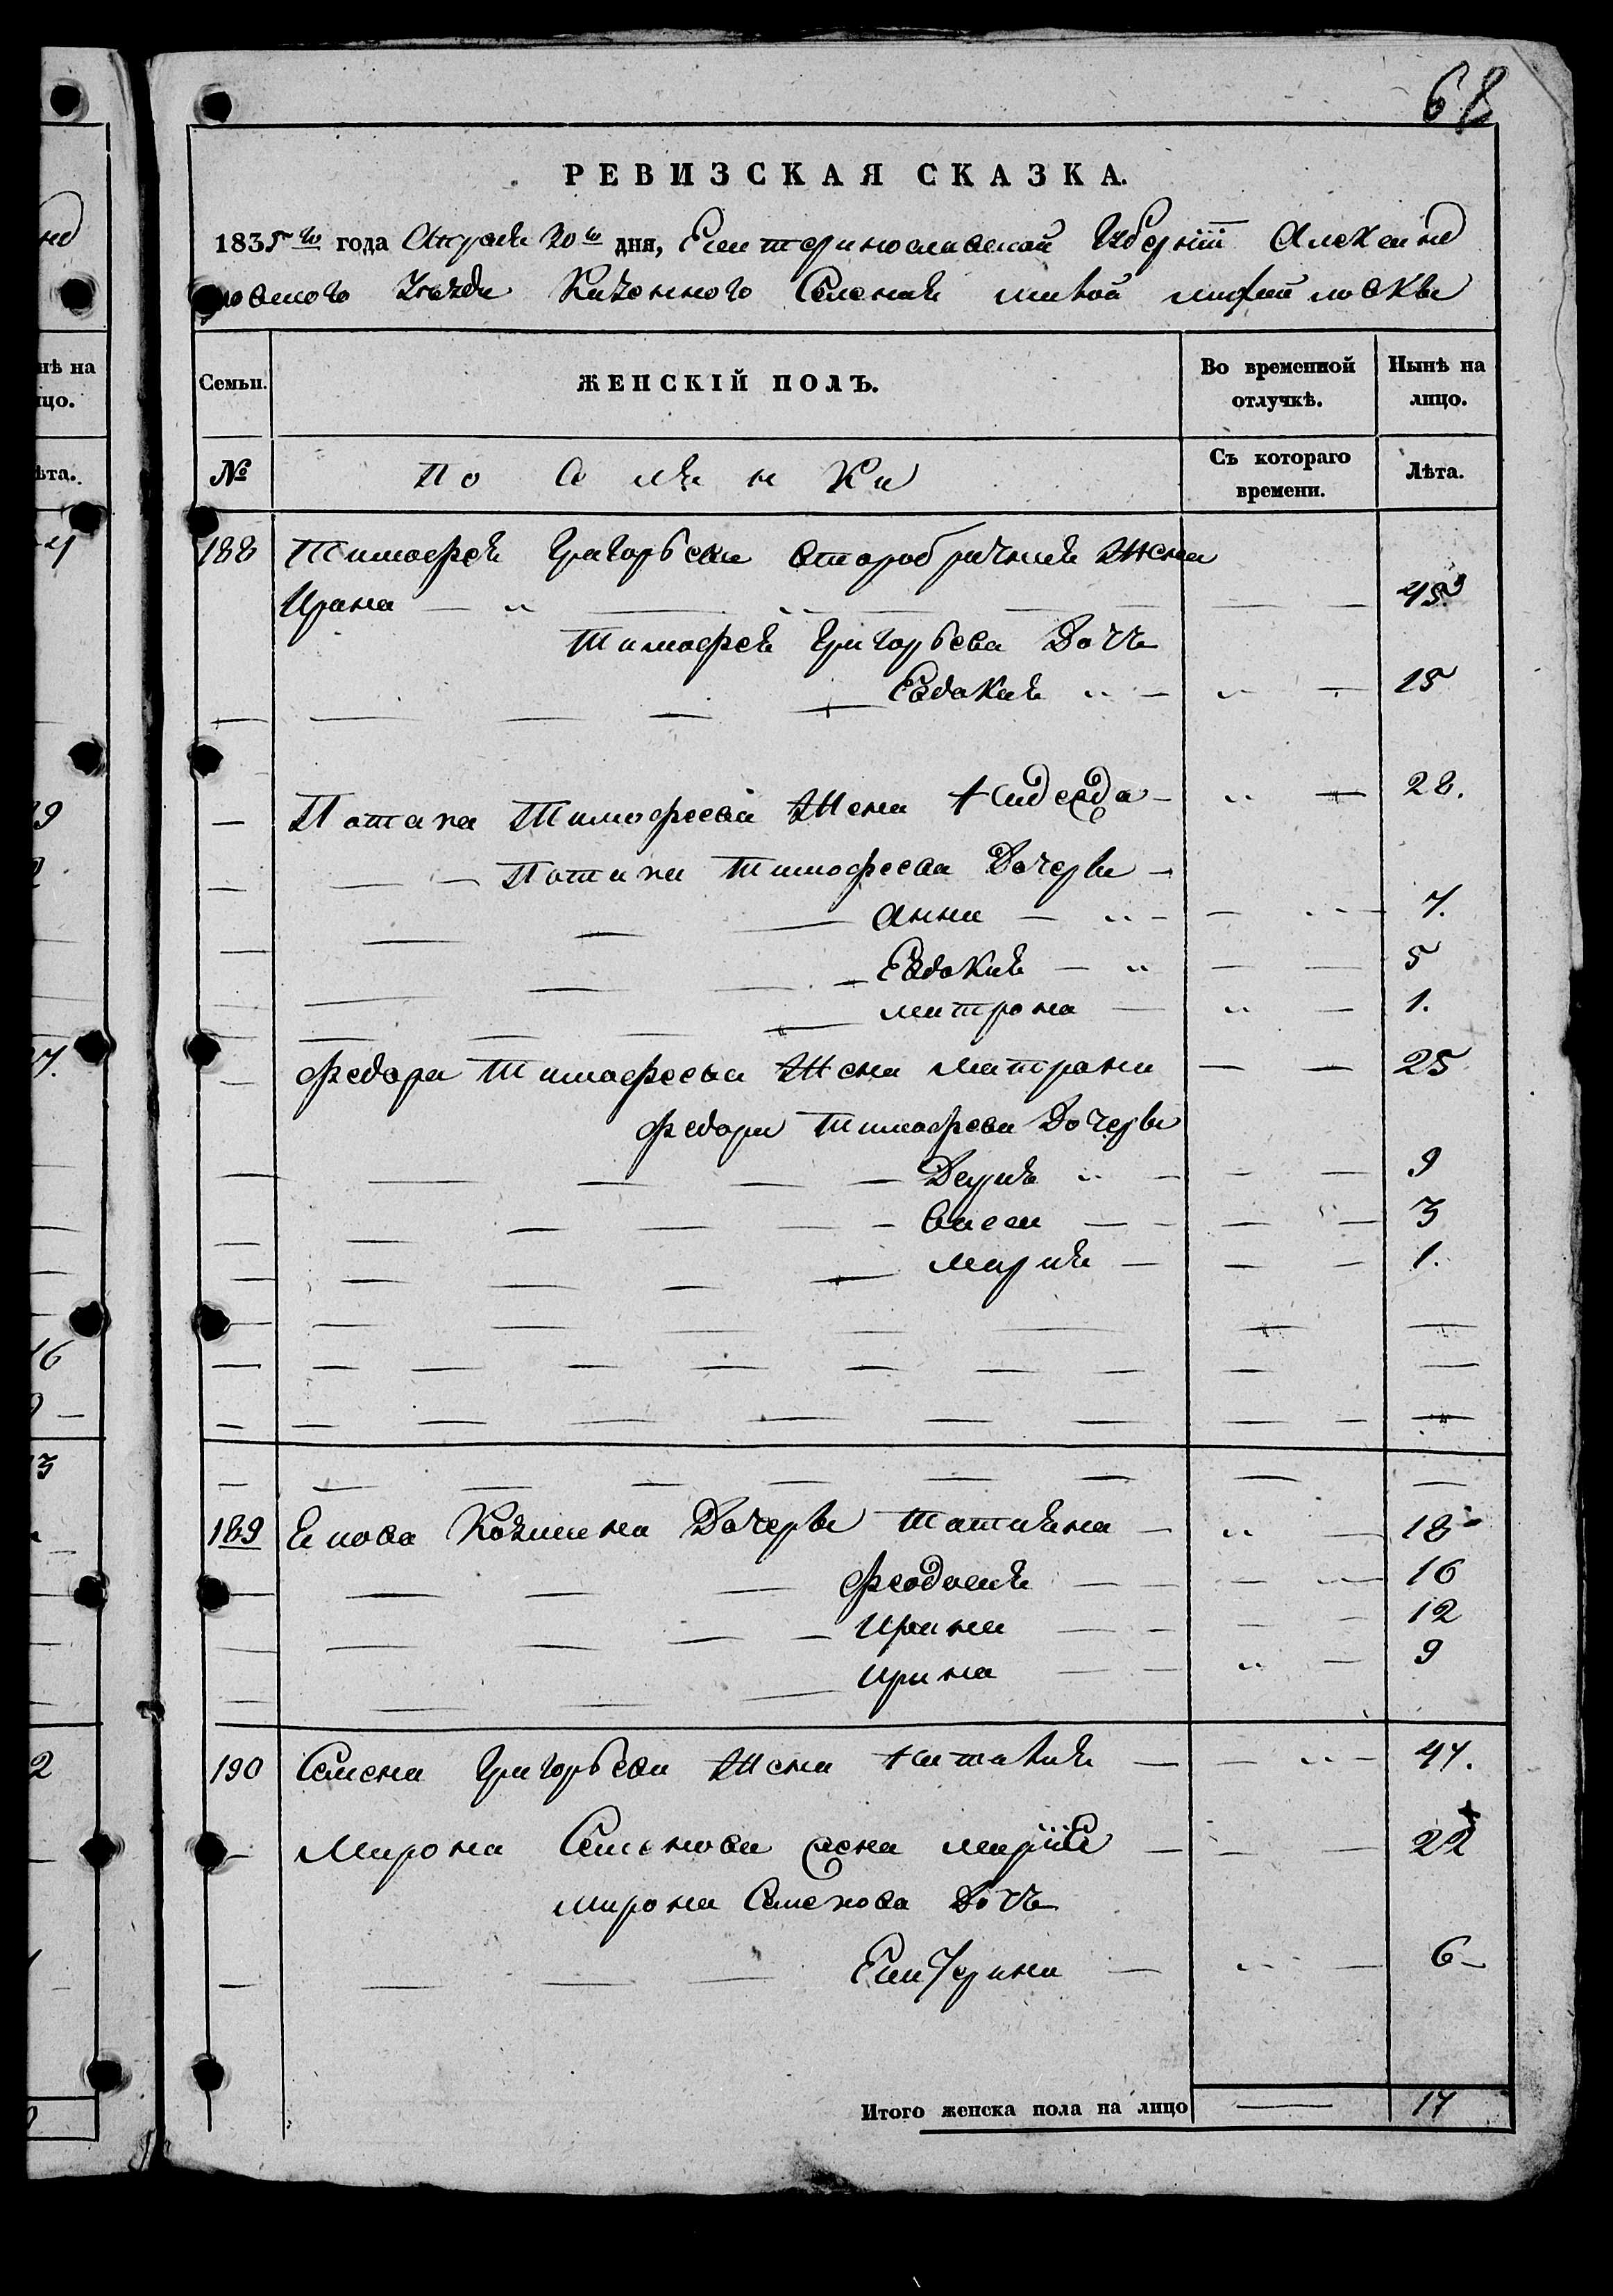 68
РЕВИЗСКАЯ СКАЗКА.
1835го года Апреля 20го дня, Екатеринославской Губернiи Александ
ровского Уезда Казенного Селения малой
Семьи.
ЖЕНСКІЙ ПОЛЪ.
Во временной отлучкѣ.
Нынѣ на лицо.
№
Поселянки
Съ котораго времени.
Лѣта.
188 Тимофея Григорьева Жена
Ирина 45
Тимофея Григорьева Дочь
Евдокия 15
Потапа Тимофеева Жена 28.
Потапа Тимофеева Дочери
Анна 7.
Евдокия 5
Матрона 1.
Федора Тимофеева Жена Матрона 25
Федора Тимофева Дочери
Дария 9
3
Мария 1.
189 Якова Козмина Дочери Татияна 18
Феодосия 16
Ирина 12
Ирина 9
190 Семена Григорьева Жена Наталия 47.
Мирона Семенова жена Марiя 22
Мирона Семенова Дочь
Екатерина 6
Итого женска пола на лицо 17